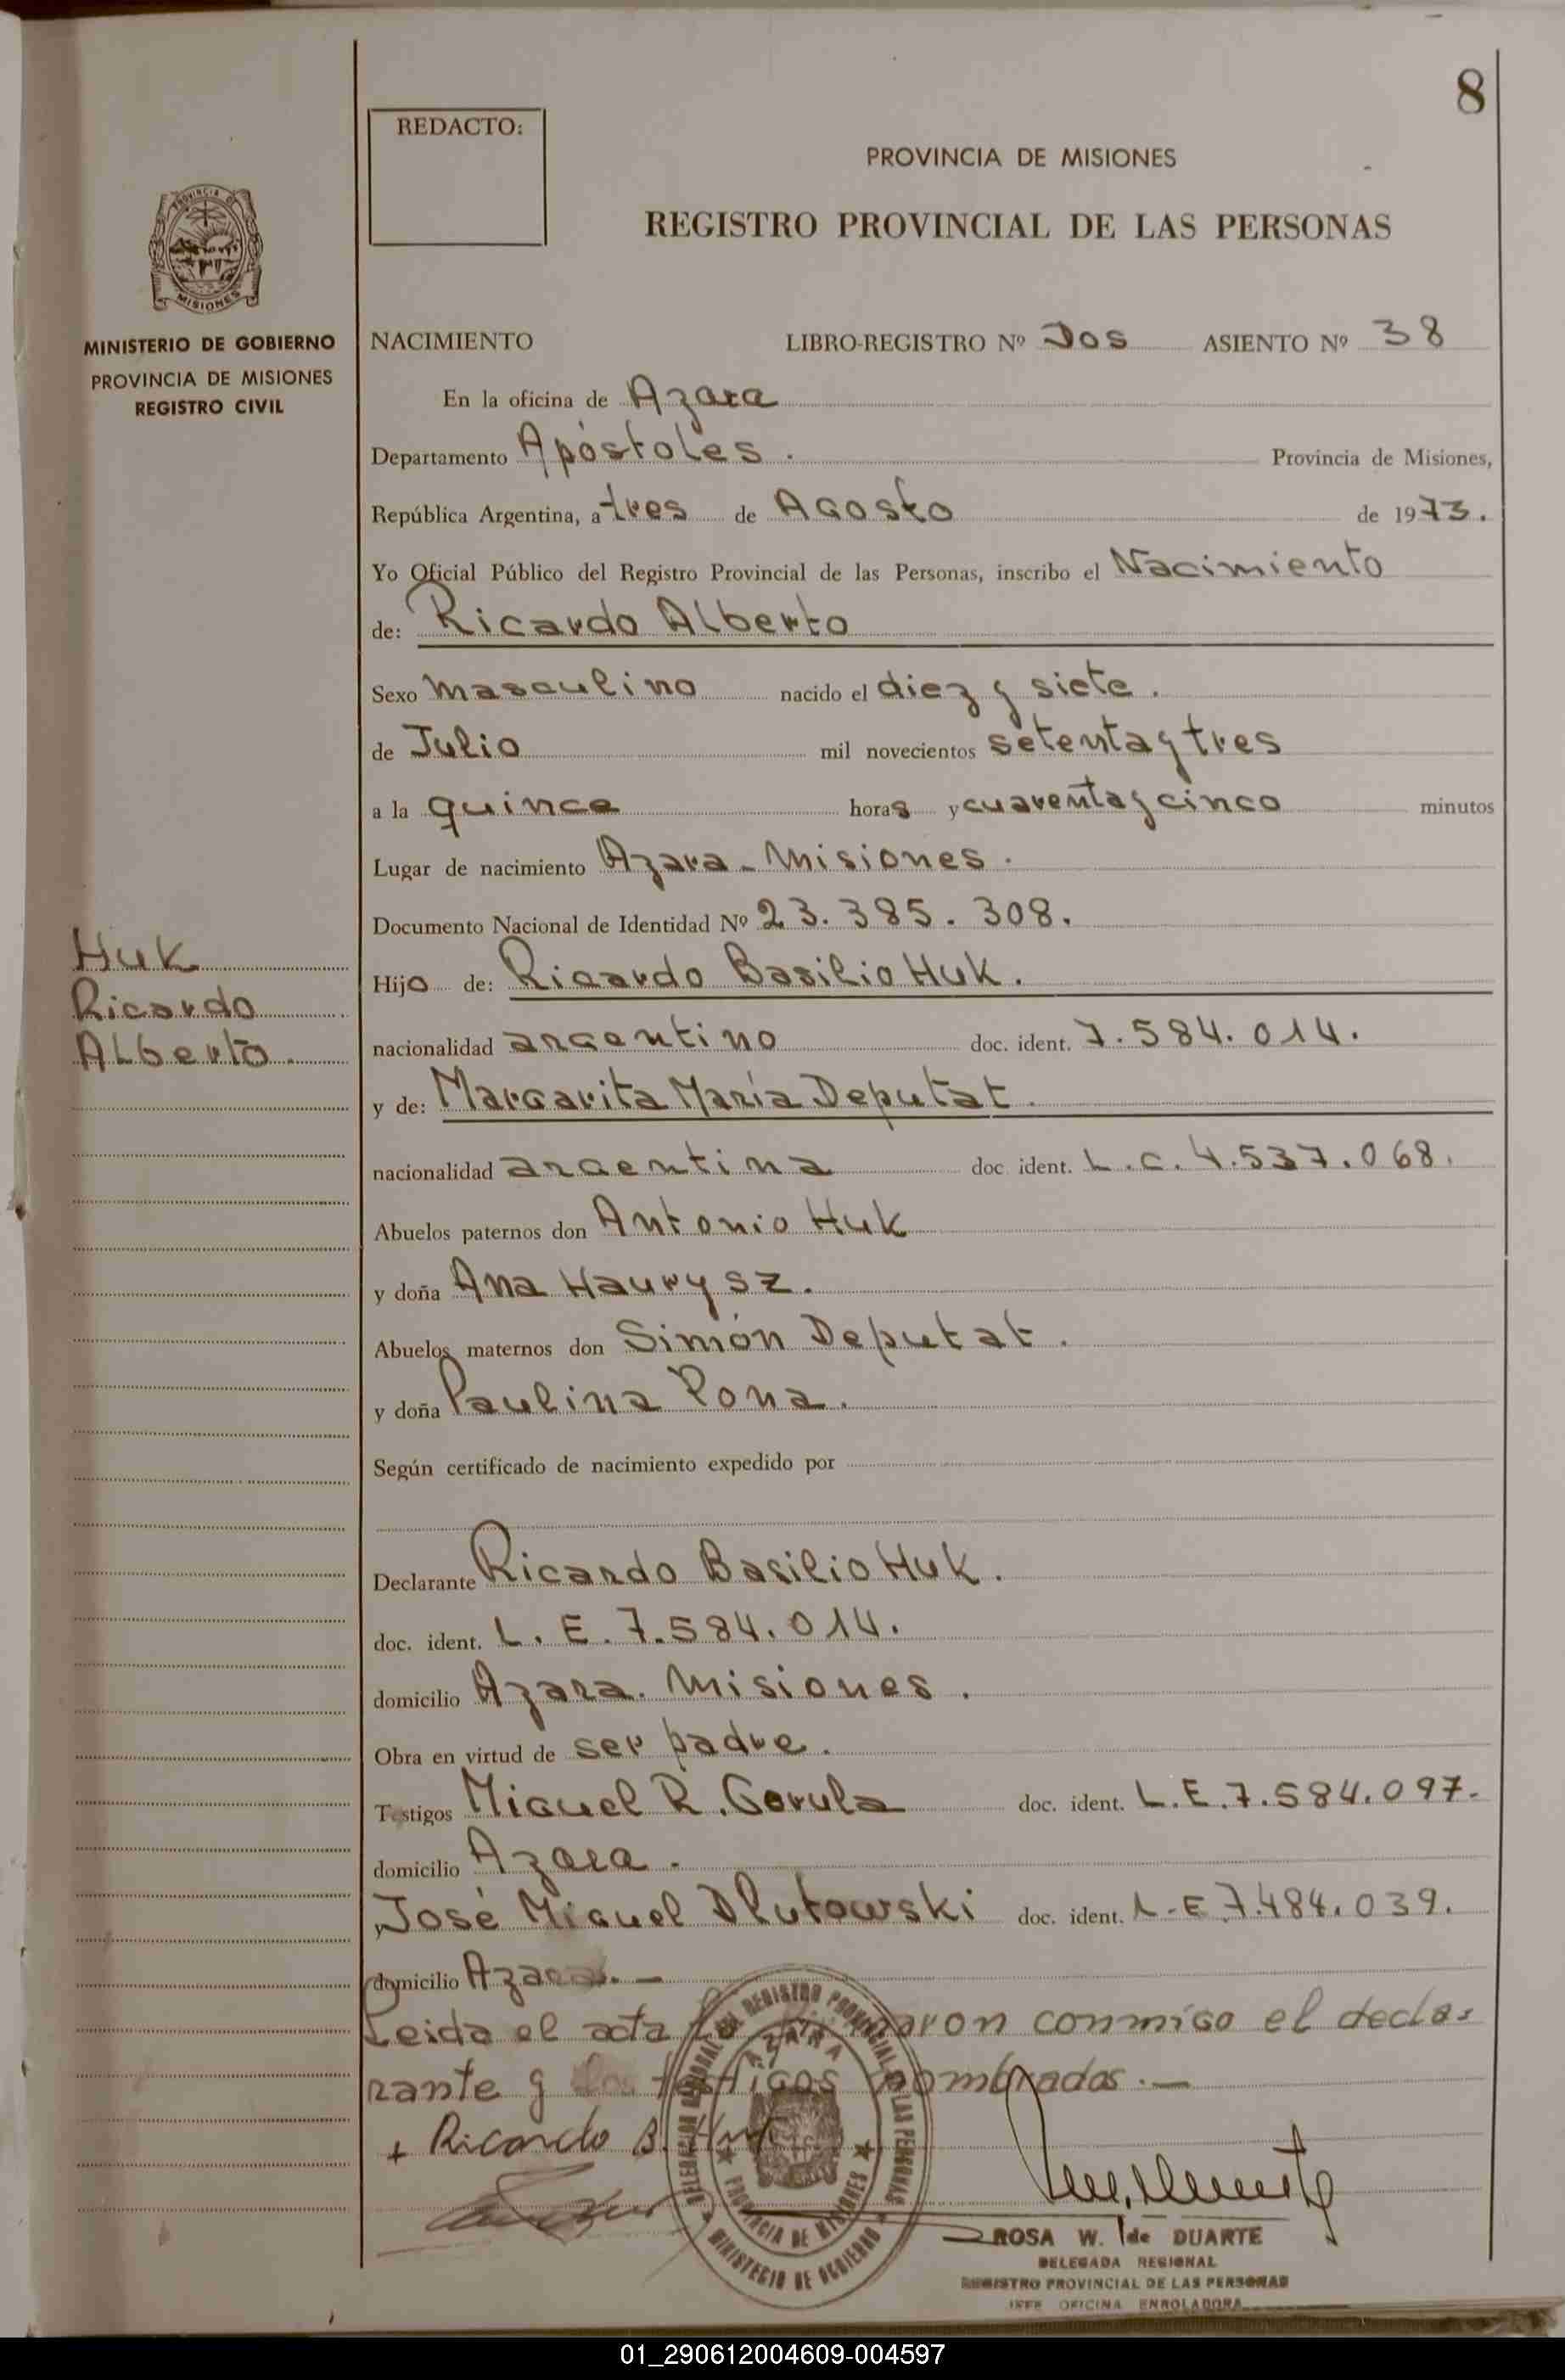 8
REDACTO:
PROVINCIA DE MISIONES
REGISTRO PROVINCIAL DE LAS PERSONAS
PROVINCIA DE
MISIONES
MINISTERIO DE GOBIERNO
PROVINCIA DE MISIONES
REGISTRO CIVIL
NACIMIENTO LIBRO-REGISTRO Nº Dos ASIENTO Nº 38
En la oficina de Azara
Departamento Apóstoles. Provincia de Misiones,
República Argentina, a tres de Agosto de 1973.
Yo Oficial Público del Registro Provincial de las Personas, inscribo el Nacimiento
de: Ricardo Alberto
Sexo masculino nacido el diez y siete.
de Julio mil novecientos setenta y tres
a la quince horas y cuarenta y cinco minutos
Lugar de nacimiento Azara - Misiones.
Documento Nacional de Identidad Nº 23.385.308.
Huk
Ricardo
Alberto.
Hijo de: Ricardo Basilio Huk.
nacionalidad argentino doc. ident. 7.584.014.
y de: Margarita María Deputat.
nacionalidad argentina doc ident. L.C. 4.537.068.
Abuelos paternos don Antonio Huk
y doña Ana Haurysz.
Abuelos maternos don Simón Deputat.
y doña Paulina Pona.
Según certificado de nacimiento expedido por
Declarante Ricardo Basilio Huk.
doc. ident. L.E. 7.584.014.
domicilio Azara. Misiones.
Obra en virtud de ser padre.
Testigos Miguel R. Gorula doc. ident. L.E. 7.584.097.
domicilio Azara.
y José Miguel Dlutowski doc. ident. L.E 7.484.039.
domicilio Azara. —
Leida el acta conmigo el decla-
rante y los testigos nombrados. —
+ Ricardo B. Huk
DELEGACION REGIONAL DEL REGISTRO PROVINCIAL DE LAS PERSONAS
AZARA
PROVINCIA DE MISIONES
MINISTERIO DE GOBIERNO
ROSA W. de DUARTE
DELEGADA REGIONAL
REGISTRO PROVINCIAL DE LAS PERSONAS
JEFE OFICINA ENROLADORA
01_290612004609-004597